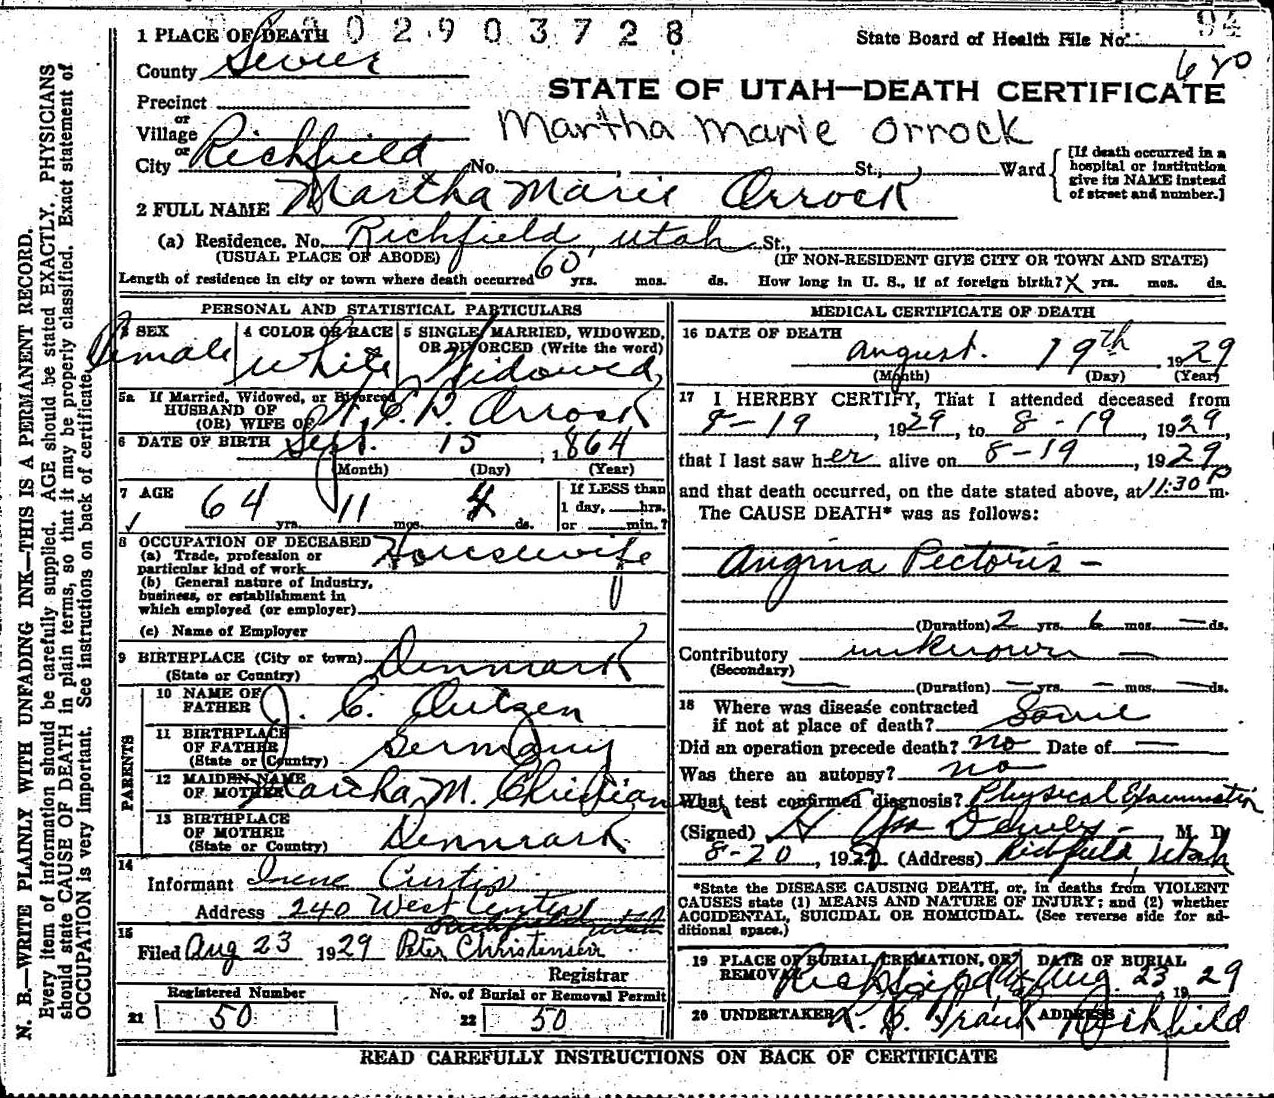 0 2 9 0 3 7 2 8
94
1 PLACE OF DEATH
State Board of Health File No.
680
County Sevier
STATE OF UTAH—DEATH CERTIFICATE
Precinct
or
Village
Martha Marie Orrock
or
City Richfield No. , St., , Ward
[If death occurred in a
hospital or institution
give its NAME instead
of street and number.]
2 FULL NAME Martha Marie Orrock
(a) Residence. No. Richfield, Utah St.,
(USUAL PLACE OF ABODE)
(IF NON-RESIDENT GIVE CITY OR TOWN AND STATE)
Length of residence in city or town where death occurred 60 yrs. mos. ds. How long in U. S., if of foreign birth? X yrs. mos. ds.
PERSONAL AND STATISTICAL PARTICULARS
3 SEX Female
4 COLOR OR RACE White
5 SINGLE, MARRIED, WIDOWED,
OR DIVORCED (Write the word)
Widowed
5a If Married, Widowed, or Divorced
HUSBAND OF
(OR) WIFE OF Orrock
6 DATE OF BIRTH Sept. 15, 1864
(Month) (Day) (Year)
7 AGE
64 yrs. 11 mos. 4 ds.
If LESS than
1 day, hrs.
or min.?
8 OCCUPATION OF DECEASED
(a) Trade, profession or
particular kind of work Housewife
(b) General nature of Industry,
business, or establishment in
which employed (or employer)
(c) Name of Employer
9 BIRTHPLACE (City or town)
(State or Country) Denmark
PARENTS
10 NAME OF
FATHER J. C. Outzen
11 BIRTHPLACE
OF FATHER
(State or Country) Germany
12 MAIDEN NAME
OF MOTHER Martha M. Christian
13 BIRTHPLACE
OF MOTHER
(State or Country) Denmark
14
Informant Irene Curtis
Address 240 West Center
Richfield Utah
15
Filed Aug 23 1929 Peter Christensen
Registrar
Registered Number
21 50
No. of Burial or Removal Permit
22 50
MEDICAL CERTIFICATE OF DEATH
16 DATE OF DEATH
August. 19th 1929
(Month) (Day) (Year)
17 I HEREBY CERTIFY, That I attended deceased from
8-19, 1929, to 8-19, 1929,
that I last saw her alive on 8-19, 1929
and that death occurred, on the date stated above, at 11:30 P m.
The CAUSE DEATH* was as follows:
Angina Pectoris -
(Duration) 2 yrs. 6 mos. — ds.
Contributory unknown —
(Secondary)
(Duration) — yrs. — mos. — ds.
18 Where was disease contracted
if not at place of death? Same
Did an operation precede death? no Date of —
Was there an autopsy? no
What test confirmed diagnosis? Physical Examination
(Signed) H Wm Dewey - M. D.
8-20, 1929. (Address) Richfield, Utah
*State the DISEASE CAUSING DEATH, or, in deaths from VIOLENT
CAUSES state (1) MEANS AND NATURE OF INJURY; and (2) whether
ACCIDENTAL, SUICIDAL OR HOMICIDAL. (See reverse side for ad-
ditional space.)
19 PLACE OF BURIAL, CREMATION, OR REMOVAL Richfield
DATE OF BURIAL
Aug. 23, 1929
20 UNDERTAKER
ADDRESS Richfield
READ CAREFULLY INSTRUCTIONS ON BACK OF CERTIFICATE
N. B.—WRITE PLAINLY WITH UNFADING INK—THIS IS A PERMANENT RECORD.
Every item of information should be carefully supplied. AGE should be stated EXACTLY. PHYSICIANS
should state CAUSE OF DEATH in plain terms, so that it may be properly classified. Exact statement of
OCCUPATION is very important. See instructions on back of certificate.